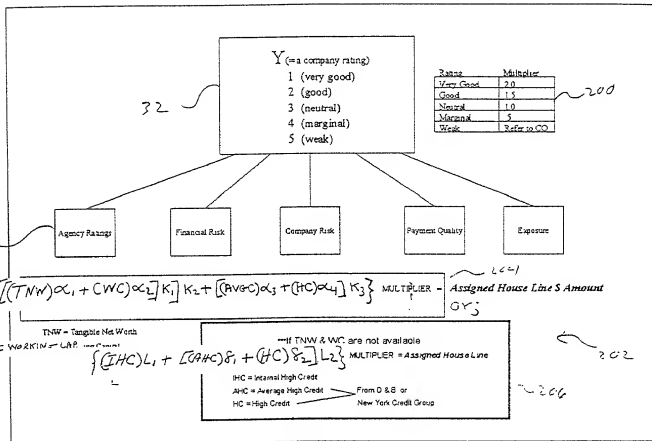 Y (= a company rating)
1 (very good)
2 (good)
3 (neutral)
4 (marginal)
5 (weak)
32
Rating Multiplier
Very Good 2.0
Good 1.5
Neutral 1.0
Marginal .5
Weak Refer to CO
200
Agency Ratings
Financial Risk
Company Risk
Payment Quality
Exposure
[(TNW)∝₁ + (WC)∝₂] K₁] K₂ + [(AVGC)∝₃ + (HC)∝₄] K₃} MULTIPLIER = Assigned House Line $ Amount
or;
TNW = Tangible Net Worth
202
---If TNW & WC are not available
{(IHC)L₁ + [(AHC)δ₁ + (HC)δ₂] L₂} MULTIPLIER = Assigned House Line
IHC = Internal High Credit
AHC = Average High Credit
HC = High Credit
From D & B or
New York Credit Group
206